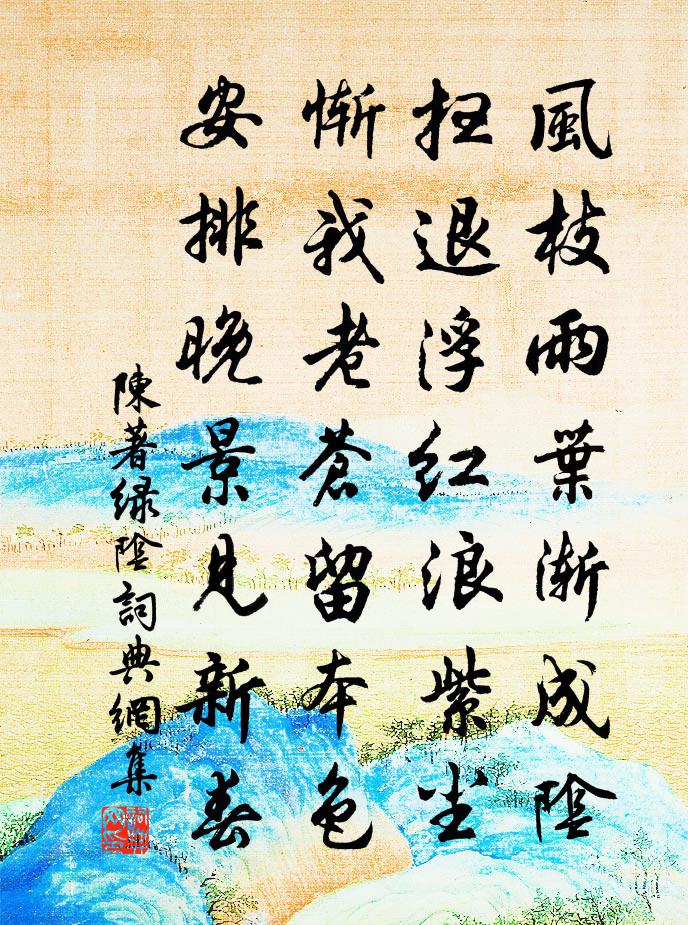 風枝雨葉漸成陰
扫退浮紅浪紫尘
慚我老蒼留本色
安排晚景見新春
陳著緑陰詞典網集